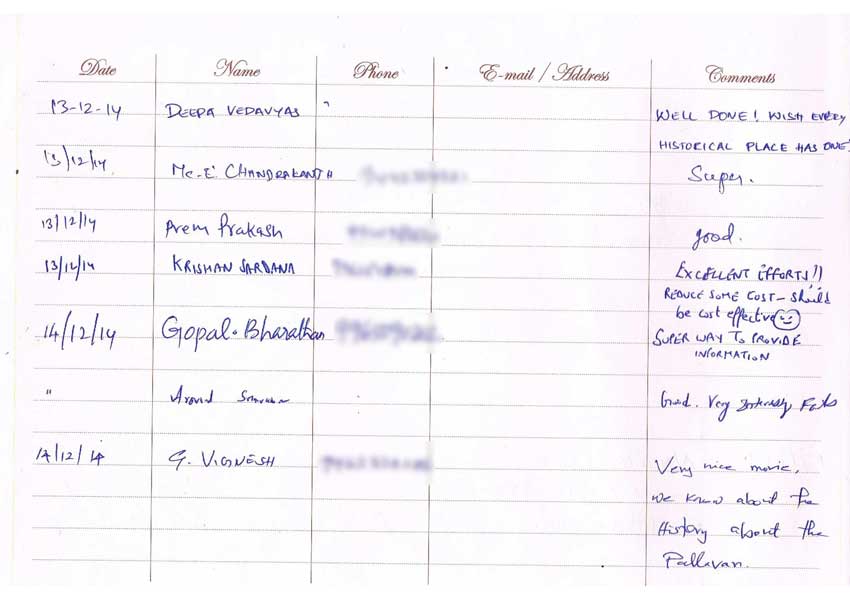 Date Name Phone E-mail / Address Comments
13-12-14 DEEPA VEDAVYAS WELL DONE! WISH EVERY
HISTORICAL PLACE HAS ONE!
13/12/14 Mr. E. CHANDRAKANTH Super.
13/12/14 Prem Prakash good.
13/12/14 KRISHAN SARDANA EXCELLENT EFFORTS!!
REDUCE SOME COST - should
be cost effective
14/12/14 Gopal. Bharathan SUPER WAY TO PROVIDE
INFORMATION
" Good. Very Facts
14/12/14 G. VIGNESH Very nice movie,
we know about the
History about the
Pallavan.